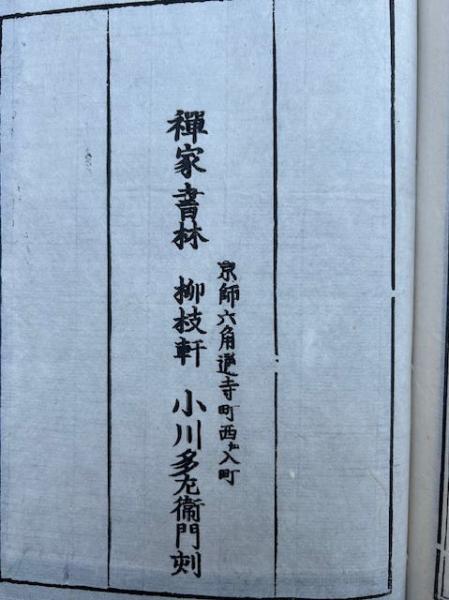 京師六角通寺町西ヘ入町
禪家書林 柳枝軒 小川多左衞門刻